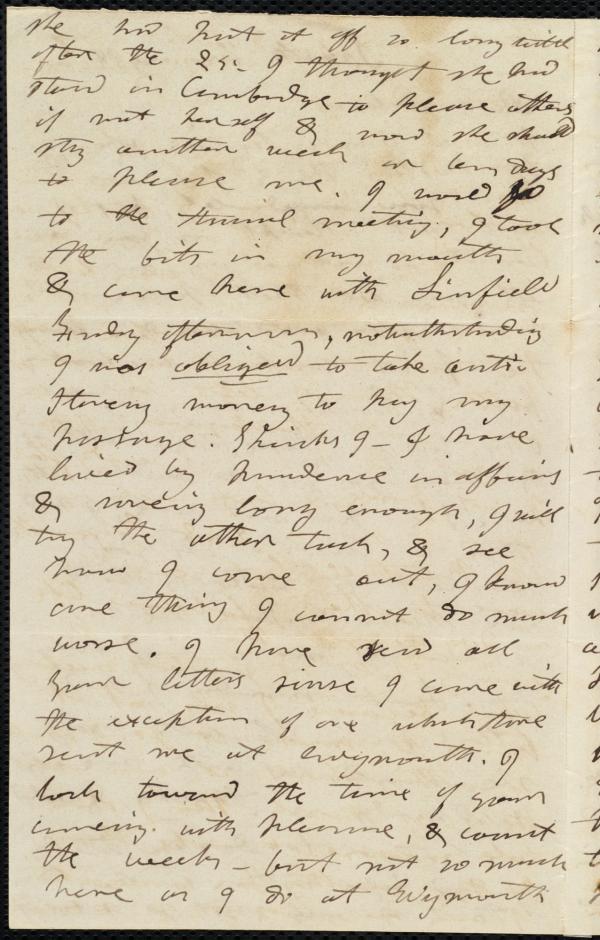 she had put it off so long till
after the 25. I thought she had
staid in Cambridge to please others
if not herself & now she should
stay another week or ten days
to please me. I would go
to the annual meeting, I took
the bits in my mouth
& came here with Linfield
Friday afternoon, notwithstanding
I was obliged to take anti-
slavery money to pay my
postage. Thinks I - I have
lived by prudence in affairs
& saving long enough, I will
try the other tack, & see
how I come out, I know
one thing I cannot do much
worse. I have read all
your letters since I came with
the exception of one
sent me at Weymouth. I
look toward the time of your
coming with pleasure, & count
the weeks - but not so much
here as I do at Weymouth